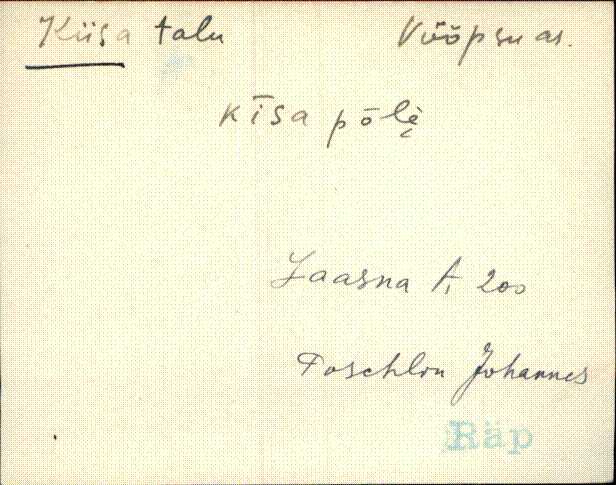 Kiisa talu Võõpsu as.
kīsa põlẹ̀
Laasna t, 200
Toschlin Johannes
Räp